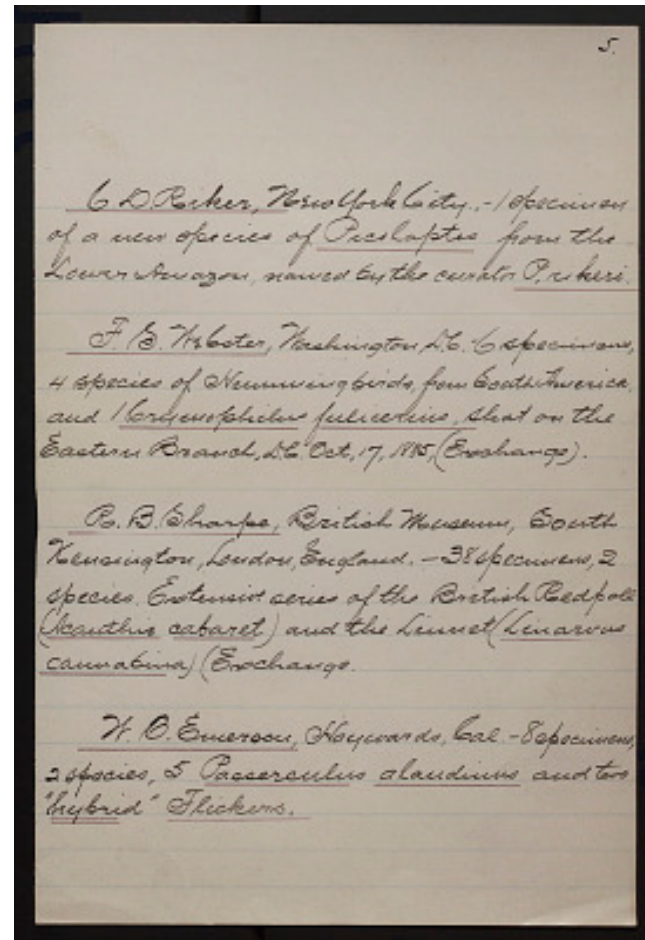 5.
C. D. Riker, New York City. - 1 specimen
of a new species of Picolaptes from the
Lower Amazon, named by the curator P. rikeri.
F. S. Webster, Washington, D.C. 6 specimens,
4 species of Hummingbirds, from South America,
and 1 fulicarius, shot on the
Eastern Branch, D.C. Oct, 17, 1885, (Exchange).
R. B. Sharpe, British Museum, South
Kensington, London, England. - 38 specimens, 2
species. Extensive series of the British Redpoll
(Acanthis cabaret) and the Linnet (
cannabina) (Exchange.
W. O. Emerson, Haywards, Cal. - 8 specimens,
2 species, 5 Passerculus alaudinus and two
"hybrid" Flickers.